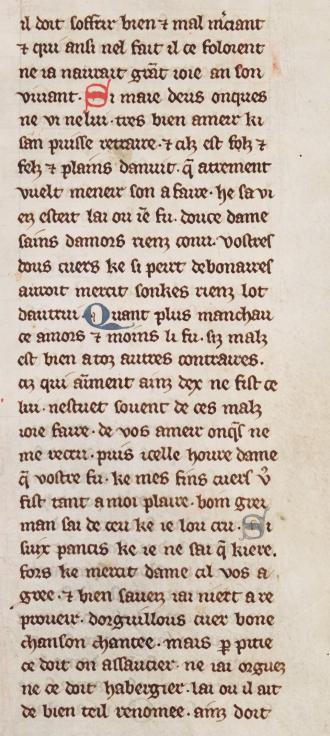 il doit soffrir bien ⁊ mal m̅ciant
⁊ qui ansi nel fait il ce foloient
ne ia naurait grãt ioie an son
viuant. Si maie deus onques
ne vi ne lui. tres bien ameir ki
san puisse retraire. ⁊ cilz est folz ⁊
felz ⁊ plains danuit. q̃ atrement
vuelt meneir son afaire. he sa vi
ez esteit lai ou ie fu. douce dame
sains damors rienz conu. vostres
dous cuers ke si peirt debonaires
auroit mercit sonkes rienz lot
dautrui. Quant plus manchau
ce amors ⁊ moins li fu. siz malz
est bien a toz autres contraires.
ciz qui aiment ainz dex ne fist ce
lui. nestuet souent de ces malz
ioie faire. de vos ameir onq̃s ne
me recru. puis icelle houre dame
q̃ vostre fu. ke mes fins cuers v̾
fist tant a moi plaire. bom grei
man sai de ceu ke ie lou cru. Si
sux pancis ke ie ne sai q̃ kiere.
fors ke mercit dame cil vos a
gree. ⁊ bien sauez iai niett a re
proueir. dorguillous cuer bone
chanson chantee. mais ꝑ pitie
ce doit on assaucier. ne iai orguez
ne ce doit habergier. lai ou il ait
de bien teil renomee. ainz doit